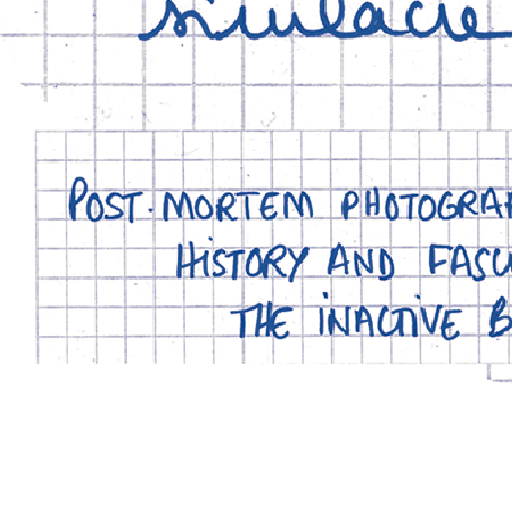 simulacre
POST-MORTEM PHOTOGRA
HISTORY AND FASC
THE INACTIVE B